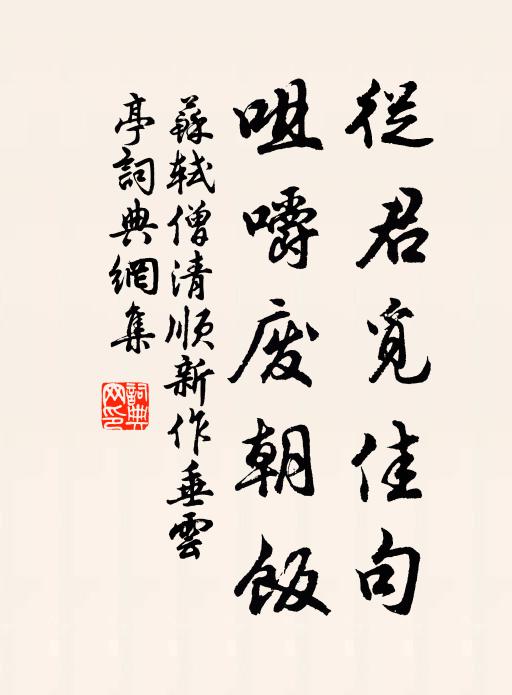 從君覓佳句
咀嚼废朝飯
蘇軾僧清順新作垂雲
亭詞典網集
詞典
网印